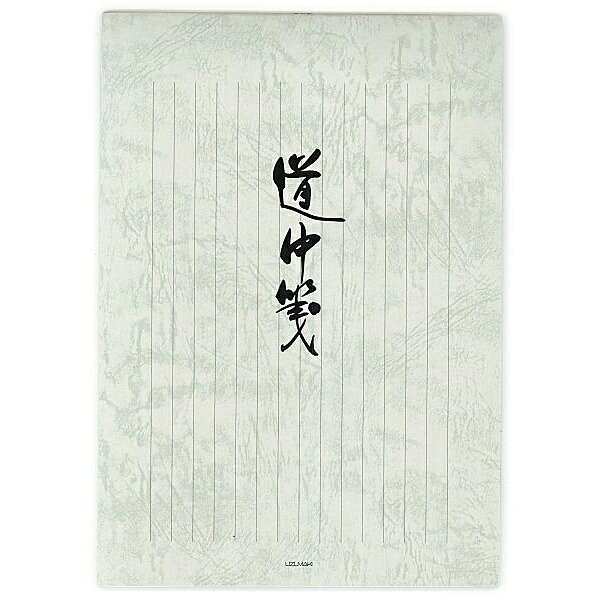 道中箋
UZUMAKI